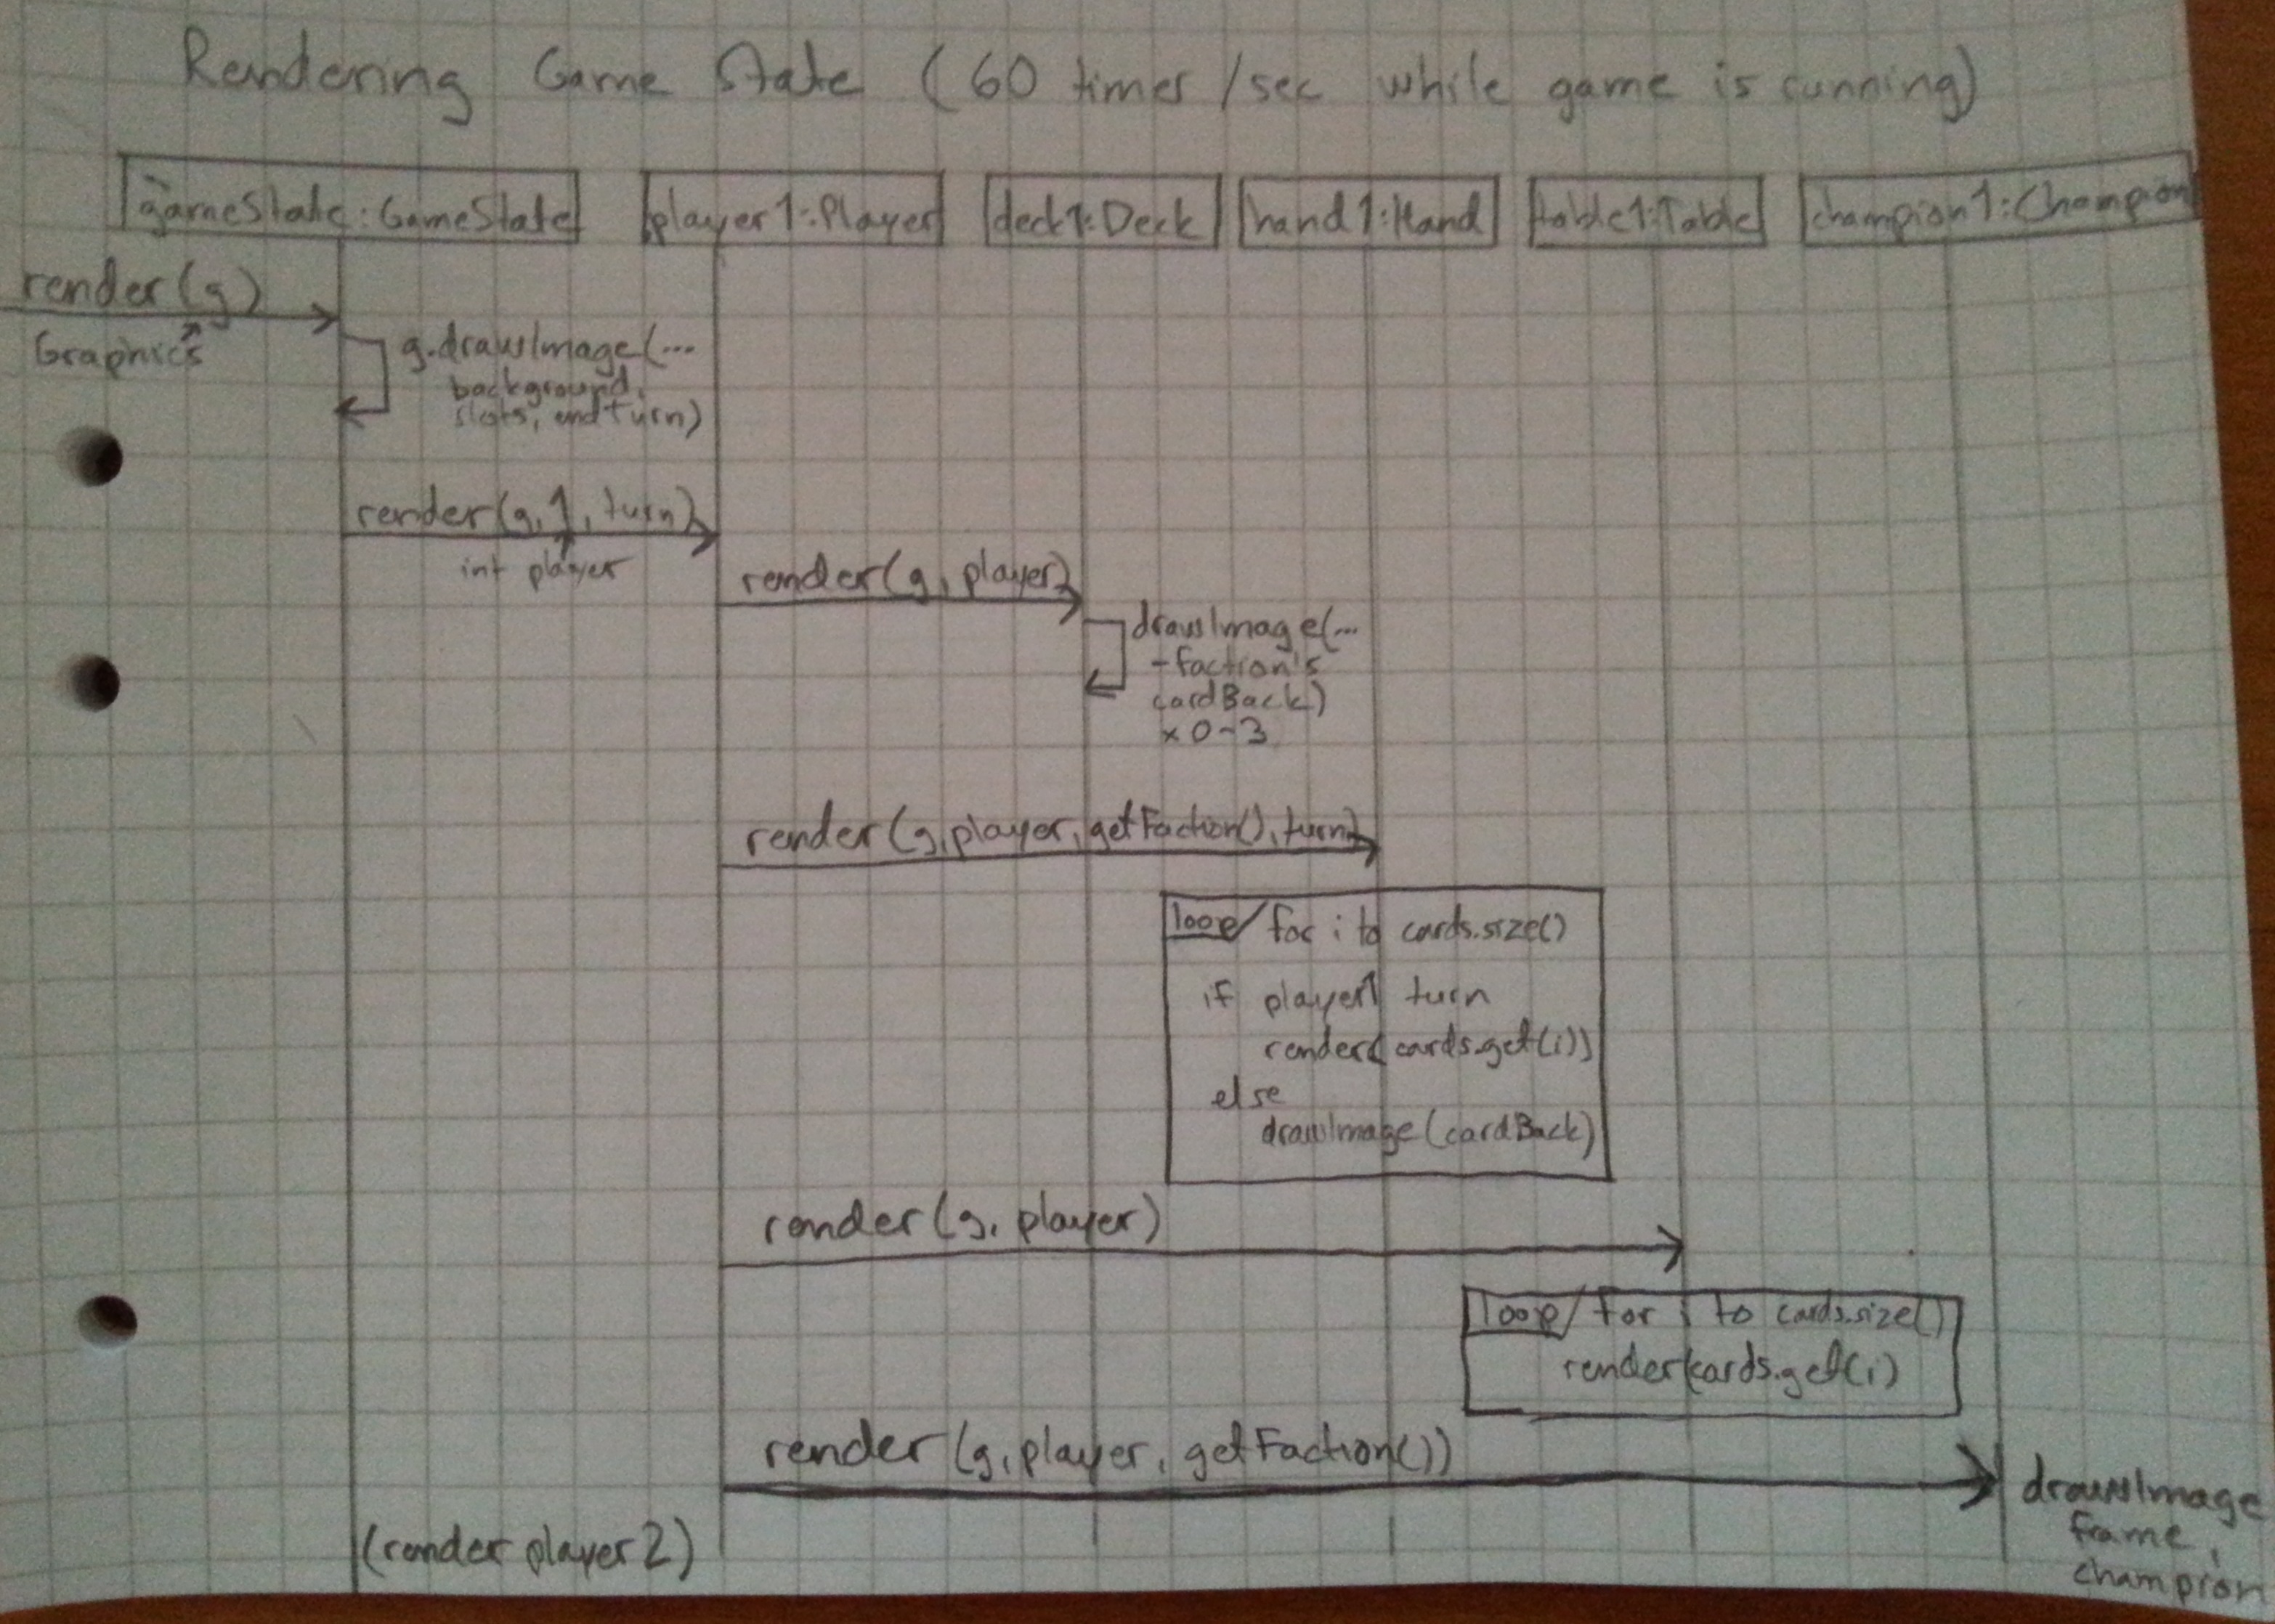 Rendering Game State (60 times/sec while game is running)
gameState:GameState
player1:Player
deck1:Deck
hand1:Hand
table1:Table
champion1:Champion
render(g)
Graphics
g.drawImage(...
background,
slots, endturn)
render(g,1,turn)
int player
render(g,player)
drawImage(...
-faction's
cardBack)
x0-3
render(g,player,getFaction(),turn)
loop/for i to cards.size()
if player1 turn
render(cards.get(i))
else
drawImage(cardBack)
render(g,player)
loop/for i to cards.size()
render(cards.get(i)
render(g,player,getFaction())
drawImage
frame,
champion
(render player2)